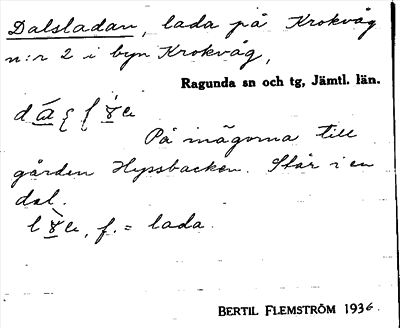 Dalsladan, lada på Krokvåg
n:r 2 i byn Krokvåg,
Ragunda sn och tg, Jämtl. län.
På mågorna till
gården Hypsbacken. Står i en
dal.
f. = lada.
BERTIL FLEMSTRÖM 1936.